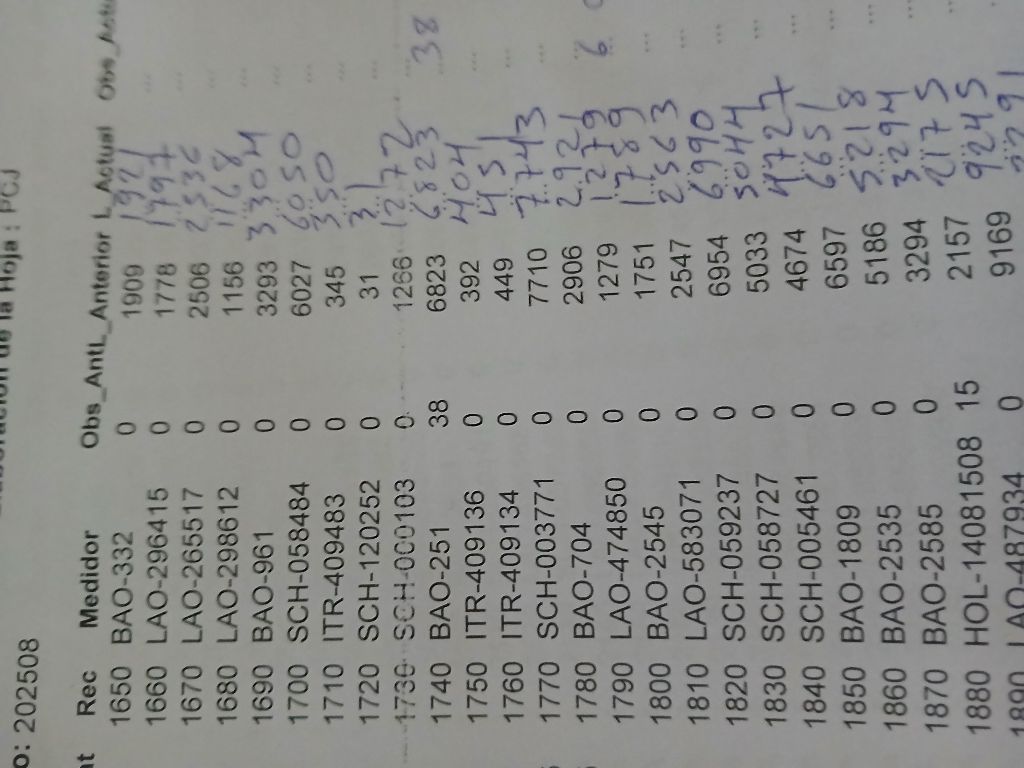 O: 202508
de la Hoja : PCJ
at Rec Medidor Obs_Ant L_Anterior L_Actual
1650 BAO-332 0 1909 1921
1660 LAO-296415 0 1778 1797
1670 LAO-265517 0 2506 2536
1680 LAO-298612 0 1156 1168
1690 BAO-961 0 3293 3304
1700 SCH-058484 0 6027 6050
1710 ITR-409483 0 345 350
1720 SCH-120252 0 31 31
1730 SCH-000103 0 1266 1272
1740 BAO-251 38 6823 6823 38
1750 ITR-409136 0 392 404
1760 ITR-409134 0 449 451
1770 SCH-003771 0 7710 7743
1780 BAO-704 0 2906 2921
1790 LAO-474850 0 1279 1279 6
1800 BAO-2545 0 1751 1789
1810 LAO-583071 0 2547 2563
1820 SCH-059237 0 6954 6990
1830 SCH-058727 0 5033 5044
1840 SCH-005461 0 4674 4727
1850 BAO-1809 0 6597 6651
1860 BAO-2535 0 5186 5218
1870 BAO-2585 0 3294 3294
1880 HOL-14081508 15 2157 2175
1890 LAO-487934 0 9169 9245